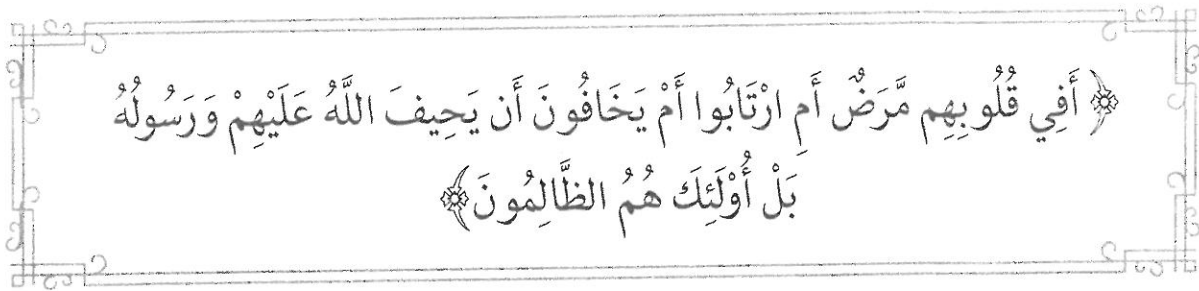 ﴿ أَفِي قُلُوبِهِم مَّرَضٌ أَمِ ارْتَابُوا أَمْ يَخَافُونَ أَن يَحِيفَ اللَّهُ عَلَيْهِمْ وَرَسُولُهُ
بَلْ أُوْلَئِكَ هُمُ الظَّالِمُونَ﴾